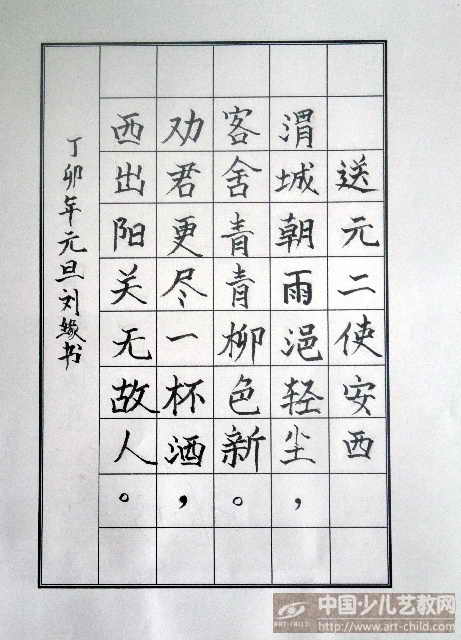 送元二使安西
渭城朝雨浥轻尘，
客舍青青柳色新。
劝君更尽一杯酒，
西出阳关无故人。
丁卯年元旦刘缘书
中国·少儿艺教网
ART-CHILD
http://www.art-child.com